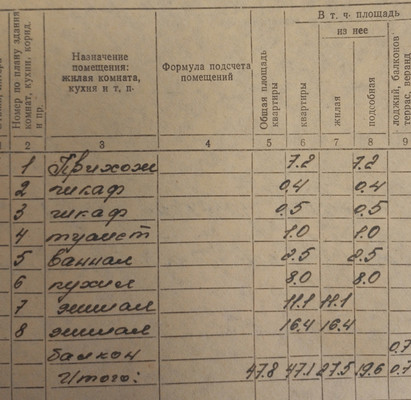 В т. ч. площадь
из нее
Номер по плану здания комнат, кухни, корид. и пр.
Назначение помещения: жилая комната, кухня и т, п.
Формула подсчета помещений
Общая площадь квартиры
квартиры
жилая
подсобная
лоджий, балконов террас, веранд
2 3 4 5 6 7 8 9
1 Прихож 7.2 7.2
2 шкаф 0.4 0.4
3 шкаф 0.5 0.5
4 туалет 1.0 1.0
5 ванная 2.5 2.5
6 кухня 8.0 8.0
7 жилая 11.1 11.1
8 жилая 16.4 16.4
балкон 0.7
Итого: 47.8 47.1 27.5 19.6 0.7